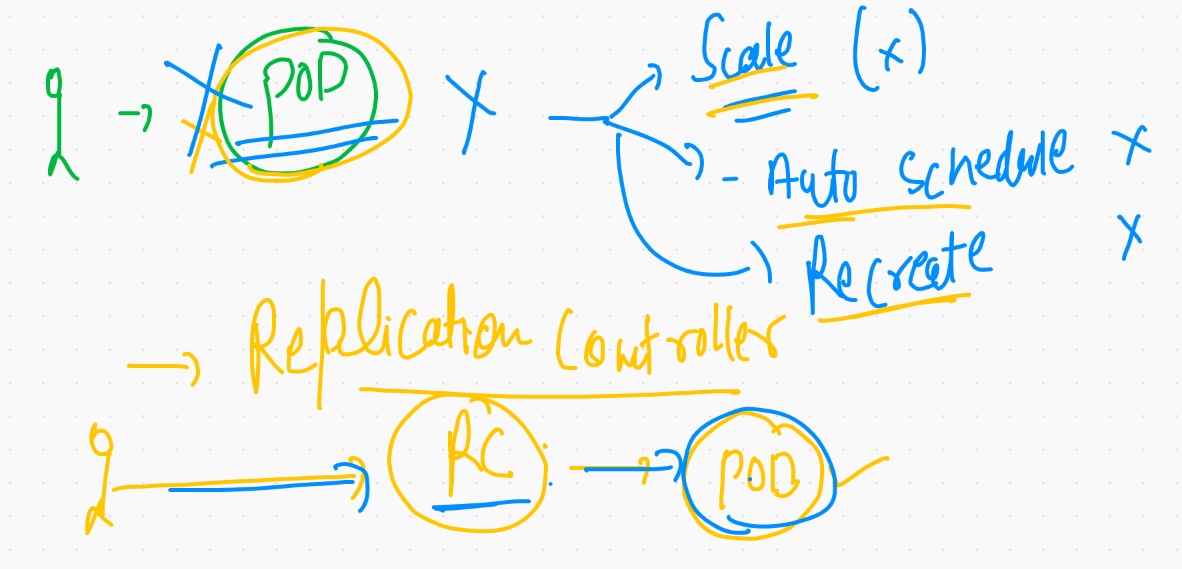 POD
Scale (x)
- Auto schedule x
Recreate x
→ Replication Controller
RC → POD